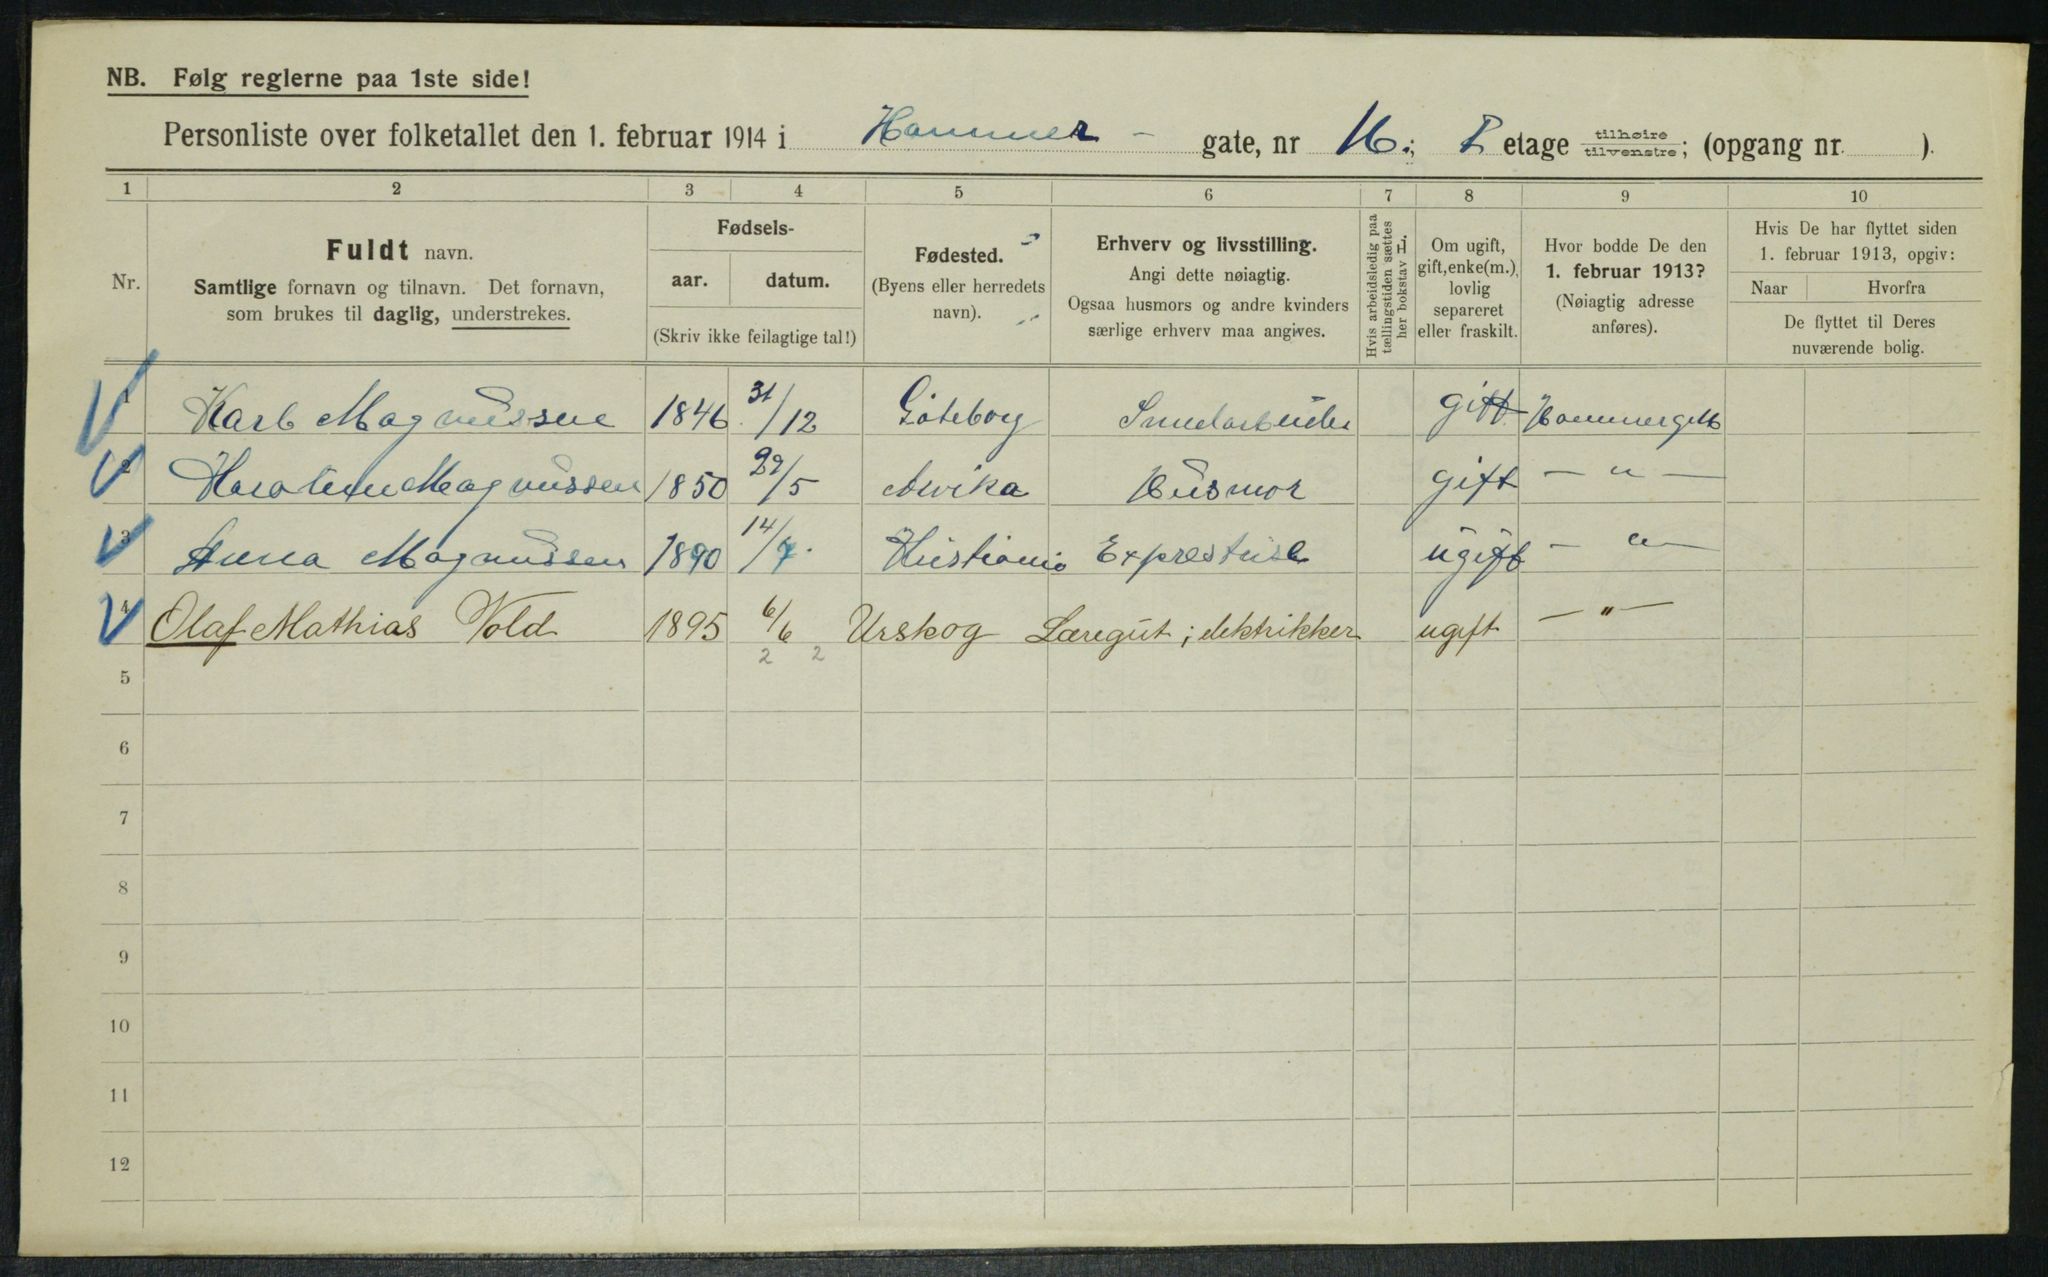 NB. Følg reglerne paa 1ste side!
Personliste over folketallet den 1. februar 1914 i Hammer - gate, nr 16; etage tilhøire tilvenstre; (opgang nr. ).
1 2 3 4 5 6 7 8 9 10
Nr.
Fuldt navn.
Samtlige fornavn og tilnavn. Det fornavn,
som brukes til daglig, understrekes.
Fødsels-
aar. datum.
(Skriv ikke feilagtige tal!)
Fødested.
(Byens eller herredets
navn).
Erhverv og livsstilling.
Angi dette nøiagtig.
Ogsaa husmors og andre kvinders
særlige erhverv maa angives.
Hvis arbeidsledig paa
tællingstiden sættes
her bokstav L.
Om ugift,
gift, enke(m.),
lovlig
separeret
eller fraskilt.
Hvor bodde De den
1. februar 1913?
(Nøiagtig adresse
anføres).
Hvis De har flyttet siden
1. februar 1913, opgiv:
Naar Hvorfra
De flyttet til Deres
nuværende bolig.
1 Karl Magnussen 1846 31/12 Göteborg Smedarbeider gift Hammergt 16
2 Karoline Magnussen 1850 29/5 Arvika Husmor gift — " —
3 Anna Magnussen 1890 14/7 Kristiania ugift — " —
4 Olaf Mathias Vold 1895 6/6 Urskog Læregut; elektrikker ugift — " —
2 2
5
6
7
8
9
10
11
12